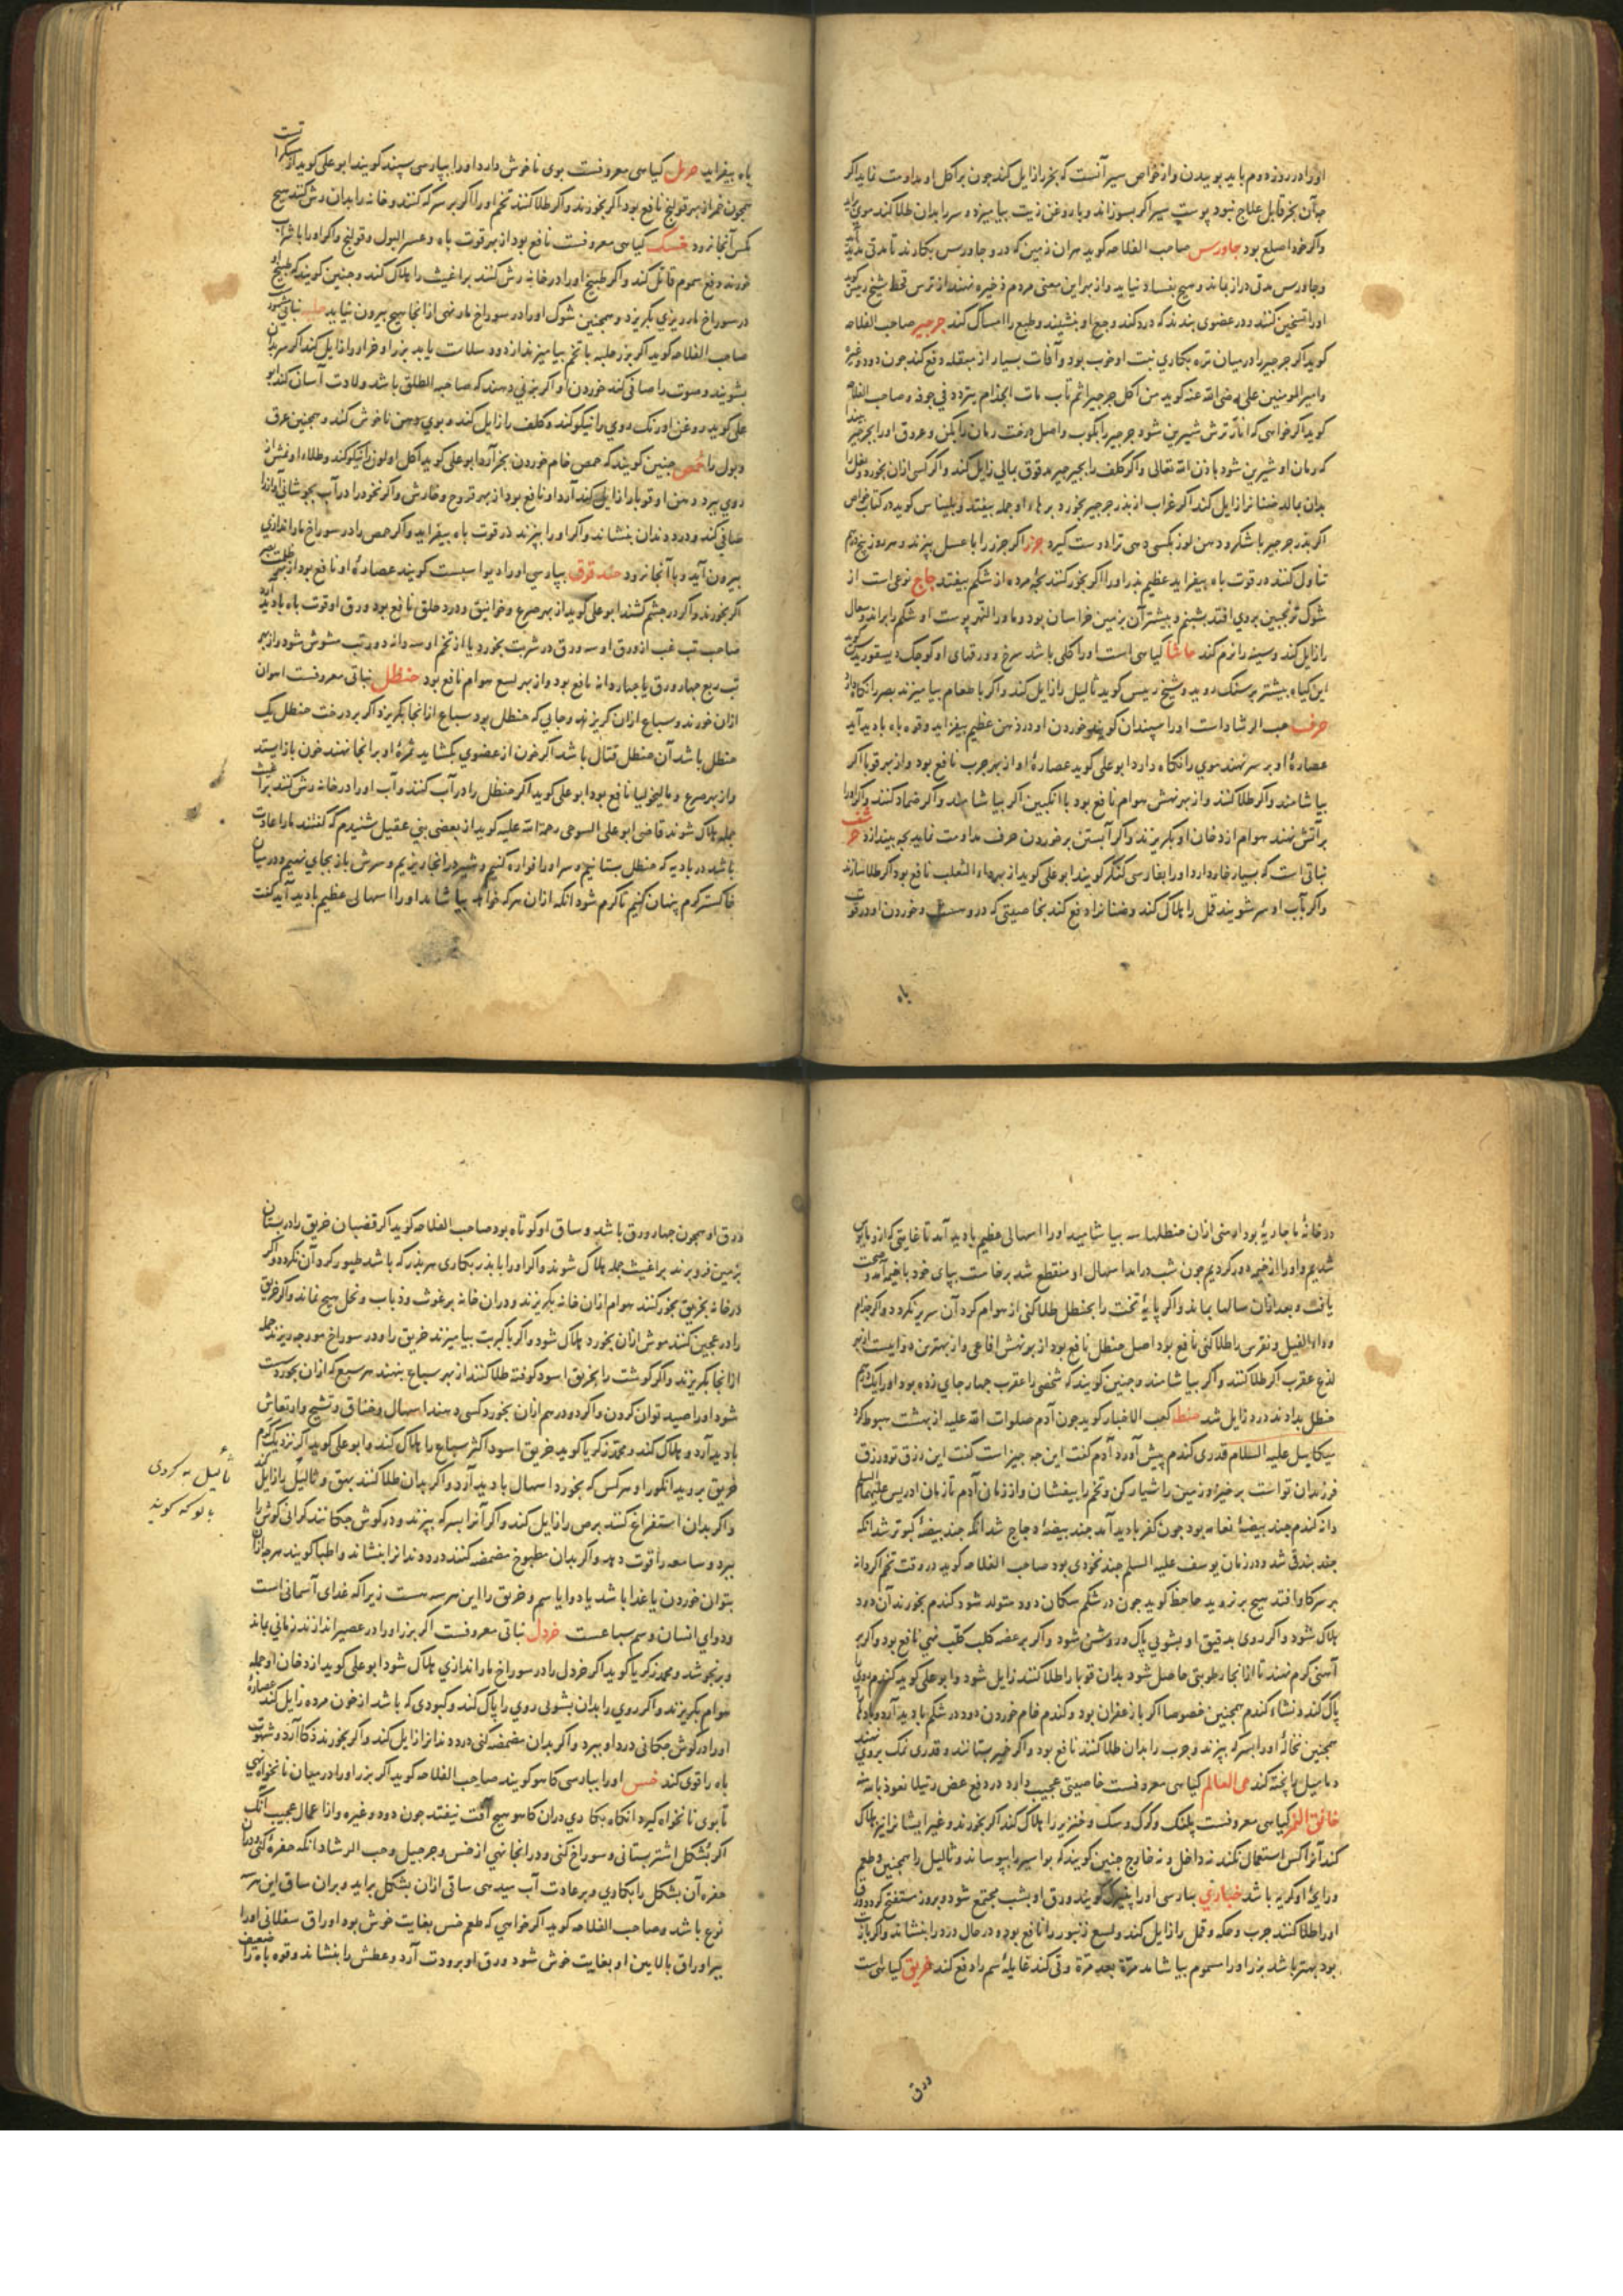 او را در روزه دوم باید بوییدن و از خواص سیر آنست که بخر را زایل کند چون بر اکل او مداومت نماید اکر
آن بخر قابل علاج نبود پوست سیر اکر بسوزاند و با روغن زیت بیامیزد و سر را بدان طلا کند موی
واکر خود اصلع بود جاورس صاحب الفلاحه کوید هر آن زمین که در و جاورس بکارند تا مدتی
و جاورس مدتی دراز بماند و هیچ بفساد نیاید و از بهر این معنی مردم ذخیره نهند از ترس قحط شیخ رئیس
او را تسخین کنند و در عضوی بندند که درد کند وجع او بنشیند و طبع را امساک کند جرجیر صاحب الفلاحه
کوید اکر جرجیر را در میان تره بکاری نبت او خوب بود و آفات بسیار از مبقله دفع کند چون دود و غیره
و امیر المومنین علی رضی الله عنه کوید من اکل جرجیرا ثم بات بات الجذام یتردد فی جوفه و صاحب الفلاحه
کوید اکر خواهی که انار ترش شیرین شود جرجیر را بکوب و اصل درخت رمان را بکن و عروق او را بجرجیر
که رمان او شیرین شود باذن الله تعالی واکر کلف را بجرجیر مدقوق بمالی زایل کند واکر کسی ازان بخورد و بغل را
بدان بمالد ضنا نرا زایل کند اکر غراب از بذر جرجیر بخورد پرها او جمله بیفتد و بلیناس کوید در کتاب خواص
اکر بذر جرجیر با شکر و دهن لوز بکسی دهی ترا دوست کیرد جزر اکر جزر را با عسل بپزند و هر روز پنج درم
تناول کنند در قوت باه بیفزاید عظیم بذر او را اکر بخور کنند بچه مرده از شکم بیفتد حاج نوعی است از
شوک ترنجبین بروی افتد بشبنم و بیشتر آن بزمین خراسان بود و ماورا النهر پوست او شکم را براند و سعال
را زایل کند و سینه را نرم کند حاشا کیاهی است او را کلی باشد سرخ و ورقهای او کوچک دیسقوریدس
این کیاه بیشتر بر سنک روید و شیخ رییس کوید ثالیل را زایل کند واکر با طعام بیامیزند بصر را نکاه دارد
حرف حب الرشاد است او را سپندان کویند خوردن او در ذهن عظیم بیفزاید و قوه باه بادید آید
عصاره او بر سر نهند موی را نکاه دارد ابو علی کوید عصاره او از بهر جرب نافع بود و از بهر قوبا اکر
بیاشامند واکر طلا کنند و از بهر نهش هوام نافع بود با انکبین اکر بیاشامند واکر ضماد کنند واکر او را
بر آتش نهند هوام از دخان او بکریزند واکر آبستن بر خوردن حرف مداومت نماید بچه بیندازد حرشف
نباتی است که بسیار خار دارد او را بفارسی کنکر کویند ابو علی کوید از بهر داء الثعلب نافع بود اکر طلا سازند
واکر بآب او سر شویند قمل را هلاک کند و ضنا نرا دفع کند بخاصیتی که در وست و خوردن او در قوت
باه
باه بیفزاید حرمل کیاهی معروفست بوی ناخوش دارد او را بپارسی سپند کویند ابو علی کوید او سکر آرست
همچون خمر از بهر قولنج نافع بود اکر بخورند واکر طلا کنند تخم او را اکر بر سرکه کنند و خانه را بدان رش کنند هیچ
مکس آنجا نرود خسک کیاهی معروفست نافع بود از بهر قوت باه و عسر البول و قولنج واکر او را با شراب
خورند دفع سموم قاتل کند واکر طبیخ او را در خانه رش کنند براغیث را هلاک کند و چنین کویند که طبیخ او
در سوراخ مار ریزی بکریزد و همچنین شوک او را در سوراخ مار نهی از آنجا هیچ بیرون نیاید حلبه نباتی
صاحب الفلاحه کوید اکر بزر حلبه با تخم بیامیزند از دود سلامت یابد بزر او خراز را زایل کند اکر سر بدان
بشویند و صوت را صافی کند خوردن او اکر بزنی دهند که صاحبة الطلق باشد ولادت آسان کند ابو
علی کوید روغن او رنک روی را نیکو کند و کلف را زایل کند و بوی دهن ناخوش کند و همچنین عرق
و بول را حمص چنین کویند که حمص خام خوردن بخر آرد ابو علی کوید اکل او لون را نیکو کند و طلاء او نمش از
روی ببرد و دهن او قوبا را زایل کند آرد او نافع بود از بهر قروح و خارش واکر نخود را در آب بجوشانی آواز را
صافی کند و درد دندان بنشاند واکر او را بپزند در قوت باه بیفزاید واکر حمص را در سوراخ مار اندازی
بیرون آید و با آنجا نرود حندقوق بپارسی او را دیو اسبست کویند عصاره او نافع بود از بهر ظلمت بصر
اکر بخورند واکر در چشم کشند ابو علی کوید از بهر صرع و خوانیق و درد حلق نافع بود ورق او قوت باه بادید
صاحب تب غب از ورق او سه ورق در شربت بخورد یا از تخم او سه دانه دور تب مشوش شود و از بهر
تب ربع چهار ورق یا چهار دانه نافع بود و از بهر لسع هوام نافع بود حنظل نباتی معروفست اهوان
ازان خورند و سباع ازان کریزند و جایی که حنظل بود سباع از انجا بکریزد اکر بر درخت حنظل یک
حنظل باشد آن حنظل قتال باشد اکر خون از عضوی بکشاید ثمره او بر انجا نهند خون باز ایستد
و از بهر صرع و مالیخولیا نافع بود ابو علی کوید اکر حنظل را در آب کنند و آب او را در خانه رش کنند براغیث
جمله هلاک شوند قاضی ابو علی التنوخی رحمة الله علیه کوید از بعضی بنی عقیل شنیدم که کفتند ما را عادت
باشد در بادیه که حنظل بستانیم و سر او را قواره کنیم و شیر در انجا بریزیم و سرش باز بجای نهیم و در میان
خاکستر کرم پنهان کنیم تا کرم شود انکه ازان هر که خواهد بیاشامد او را اسهالی عظیم بادید آید کفت
در خانه ما جاریه بود او شی ازان حنظلها سه بیاشامید او را اسهالی عظیم بادید آمد تا غایتی که از و مایوس
شدیم و او را از خیمه دور کردیم چون شب درامد اسهال او منقطع شد برخاست بپای خود با خیمه آمد و صحت
یافت و بعد ازان سالها بماند واکر پایه تخت را بحنظل طلا کنی از هوام کرد آن سریر نکردد واکر جذام
و داء الفیل و نقرس را طلا کنی نافع بود اصل حنظل نافع بود از بهر نهش افاعی و از بهترین دوا ایست از بهر
لذع عقرب اکر طلا کنند واکر بیاشامند و چنین کویند که شخصی را عقرب چهار جای زده بود او را یک درم
حنظل بدادند درد زایل شد حنطه کعب الاخبار کوید چون آدم صلوات الله علیه از بهشت هبوط کرد
میکاییل علیه السلام قدری کندم پیش آورد آدم کفت این چه چیز است کفت این رزق تو و رزق
فرزندان تو است برخیز و زمین را شیار کن و تخم را بیفشان و از زمان آدم تا زمان ادریس علیهما السلم
دانه کندم چند بیضه نعامه بود چون کفر بادید آمد چند بیضه دجاج شد انکه چند بیضه کبوتر شد انکه
چند بندقی شد و در زمان یوسف علیه السلم چند نخودی بود صاحب الفلاحه کوید در وقت تخم اکر دانه
بر سر کاو افتد هیچ بر نروید جاحظ کوید چون در شکم سکان دود متولد شود کندم بخورند آن دود
هلاک شود واکر روی بدقیق او بشویی پاک و روشن شود واکر بر عضه کلب کلب نهی نافع بود واکر بر
آهنی کرم نهند تا از انجا رطوبتی حاصل شود بدان قوبا را طلا کنند زایل شود و ابو علی کوید کندم روی را
پاک کند و نشاء کندم همچنین خصوصا اکر با زعفران بود و کندم خام خوردن دود در شکم بادید آرد و بادها
همچنین نخاله او را بسرکه بپزند و جرب را بدان طلا کنند نافع بود واکر خمیر بستانند و قدری نمک بروی نهند
دمامیل را پخته کند حی العالم کیاهی معروفست خاصیتی عجیب دارد در دفع عض رتیلا نعوذ بالله منه
خانق النمر کیاهی معروفست پلنک و کرک و سک و خنزیر را هلاک کند اکر بخورند و غیر ایشانرا نیز هلاک
کند آنرا کس استعمال نکند نه داخل و نه خارج چنین کویند که بواسیر را بپوساند و ثالیل را همچنین و طعم
و رایحه او کریه باشد خبازی بپارسی او را پنیرک کویند ورق او بشب مجتمع شود و بروز منفتح کردد ورق
او را طلا کنند جرب و حکه و قمل را زایل کند و لسع زنبور را نافع بود در حال درد را بنشاند واکر با زیت
بود بهتر باشد بزر او را مسموم بیاشامد مرّة بعد مرّة و قی کند غایله سم را دفع کند خربق کیاهی است
ورق
ورق او همچون چهار ورق باشد و ساق او کوتاه بود صاحب الفلاحه کوید اکر قضبان خربق را در بستان
بزمین فرو برند براغیث جمله هلاک شوند واکر او را با بذر بکاری هر بذر که باشد طیور کرد آن نکردد واکر
در خانه بخربق بخور کنند هوام ازان خانه بکریزند و دران خانه برغوث و ذباب و نحل هیچ نماند واکر خربق
را در عجین کنند موش ازان بخورد هلاک شود واکر با کبریت بیامیزند خربق را و در سوراخ مورچه ریزند جمله
از انجا بکریزند واکر کوشت را بخربق اسود کوفته طلا کنند از بهر سباع بنهند هر سبع که ازان بخورد سست
شود او را صید توان کردن واکر دو درهم ازان بخورد کسی دهند اسهال و خناق و تشنج و ارتعاش
بادید آرد و هلاک کند و محمد زکریا کوید خربق اسود اکثر سباع را هلاک کند و ابو علی کوید اکر نزدیک کرم
خربق بروید انکور او هر کس که بخورد اسهال بادید آرد واکر بدان طلا کنند بهق و ثالیل را زایل کند
واکر بدان استفراغ کنند برص را زایل کند واکر آنرا بسرکه بپزند و در کوش چکانند کرانی کوش را
ببرد و سامعه را قوت دهد واکر بدان مطبوخ مضمضه کنند درد دندانرا بنشاند و اطبا کویند هر چه ازان
بتوان خوردن یا غدا باشد یا دوا یا سم و خربق را این هر سه هست زیرا که غدای آسمانی است
و دوای انسان و سم سباعست خردل نباتی معروفست اکر بزر او را در عصیر اندازند زمانی بماند
و برنجوشد و محمد زکریا کوید اکر خردل را در سوراخ مار اندازی هلاک شود ابو علی کوید از دخان او جمله
هوام بکریزند واکر روی را بدان بشویی روی را پاک کند و کبودی که باشد از خون مرده زایل کند عصاره
او را در کوش چکانی درد او ببرد واکر بدان مضمضه کنی درد دندانرا زایل کند واکر بخورند ذکا آرد و شهوت
باه را قوی کند خس او را بپارسی کاهو کویند صاحب الفلاحه کوید اکر بزر او را در میان نانخواه نهی
تا بوی نانخواه کیرد انکاه بکاری دران کاهو هیچ آفت نیفتد چون دود و غیره و از اعمال عجیب آنک
اکر بشکل اشتر بستانی و سوراخ کنی و در انجا نهی از خس و جرجیل و حب الرشاد انکه حفره کنی و در میان
حفره آن بشکل را بکاری و بر عادت آب میدهی ساقی ازان بشکل براید و بران ساق این هر سه
نوع باشد و صاحب الفلاحه کوید اکر خواهی که طعم خس بغایت خوش بود اوراق سفلانی او را
ببر اوراق بالایین او بغایت خوش شود ورق او برودت آرد و عطش را بنشاند و قوه باه را ضعیف
ثألیل به کردی
بالوکه کویند